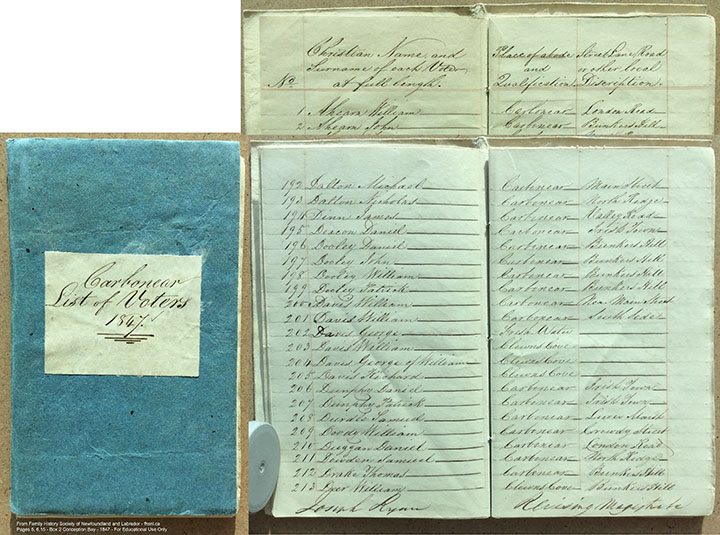 Carbonear
List of Voters
1847.
No Christian Name and Surname of each Voter at full length. Place of abode and Qualification Street Lane Road or other local Discription.
1 Ahearn William Carbonear London Road
2 Ahearn John Carbonear Bunkers Hill
192 Dalton Michael Carbonear Main Street
193 Dalton Nicholas Carbonear North Hedge
194 Dinn James Carbonear Valley Road
195 Deacon Daniel Carbonear Irish Town
196 Dooley Daniel Carbonear Bunkers Hill
197 Dooley John Carbonear Bunkers Hill
198 Dooley William Carbonear Bunkers Hill
199 Dooley Patrick Carbonear Bunkers Hill
200 Davis William Carbonear Main Street
201 Davis William Carbonear South Side
202 Davis George Fresh Water
203 Davis William Clowns Cove
204 Davis George of William Clowns Cove
205 Davis Richard Clowns Cove
206 Dunphy Daniel Carbonear Irish Town
207 Dunphy Patrick Carbonear Irish Town
208 Samuel Carbonear
209 Doody William Carbonear Crowdy Street
210 Duggan Daniel Carbonear London Road
211 Dowden Samuel Carbonear North Hedge
212 Drake Thomas Carbonear Bunkers Hill
213 William Clowns Cove Bunkers Hill
Joseph Revising Magistrate
From Family History Society of Newfoundland and Labrador - fhsnl.ca
Pages 5, 6,15 - Box 2 Conception Bay - 1847 - For Educational Use Only